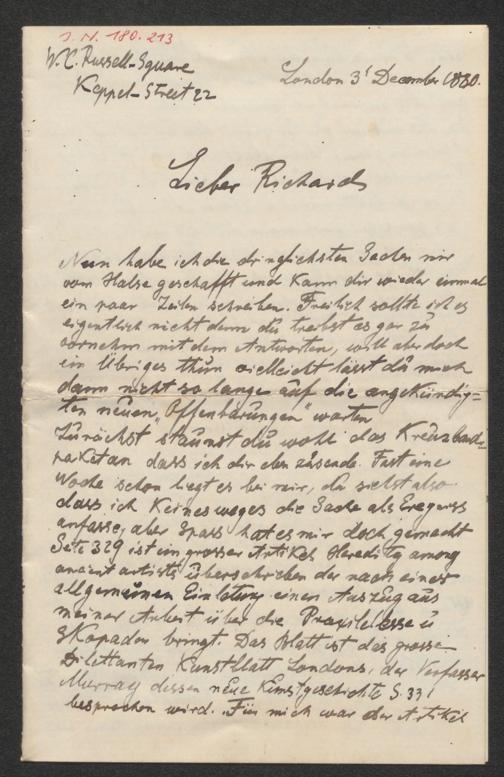 J. N. 180.213
W.C. Russell-Square
Keppel-Street 22
London 3t December 1880.
Lieber Richard
Nun habe ich die dringlichsten Sachen mir
vom Halse geschafft und kann dir wieder einmal
ein paar Zeilen schreiben. Freilich sollte ich es
eigentlich nicht denn du treibst es gar zu
vornehm mit dem Antworten, will aber doch
ein Übriges thun vielleicht lässt du mich
dann nicht so lange auf die angekündig-
ten neuen "Offenbarungen" warten
Zunächst staunst du wohl das Kreuzband-
paket an dass ich dir eben zusende. Fast eine
Woche schon liegt es bei mir, du siehst also
dass ich keineswegs die Sache als Ereigniss
anfasse, aber Spass hat es mir doch gemacht
Seite 329 ist ein grosser Artikel Heredity among
ancient artists überschrieben der nach einer
allgemeinen Einleitung einen Auszug aus
meiner Arbeit über die Praxiteles u
Skopaden bringt. Das Blatt ist das grosse
Dilettanten Kunstblatt Londons, der Verfasser
Murray dessen neue Kunstgeschichte S. 331
besprochen wird. Für mich war der Artikel